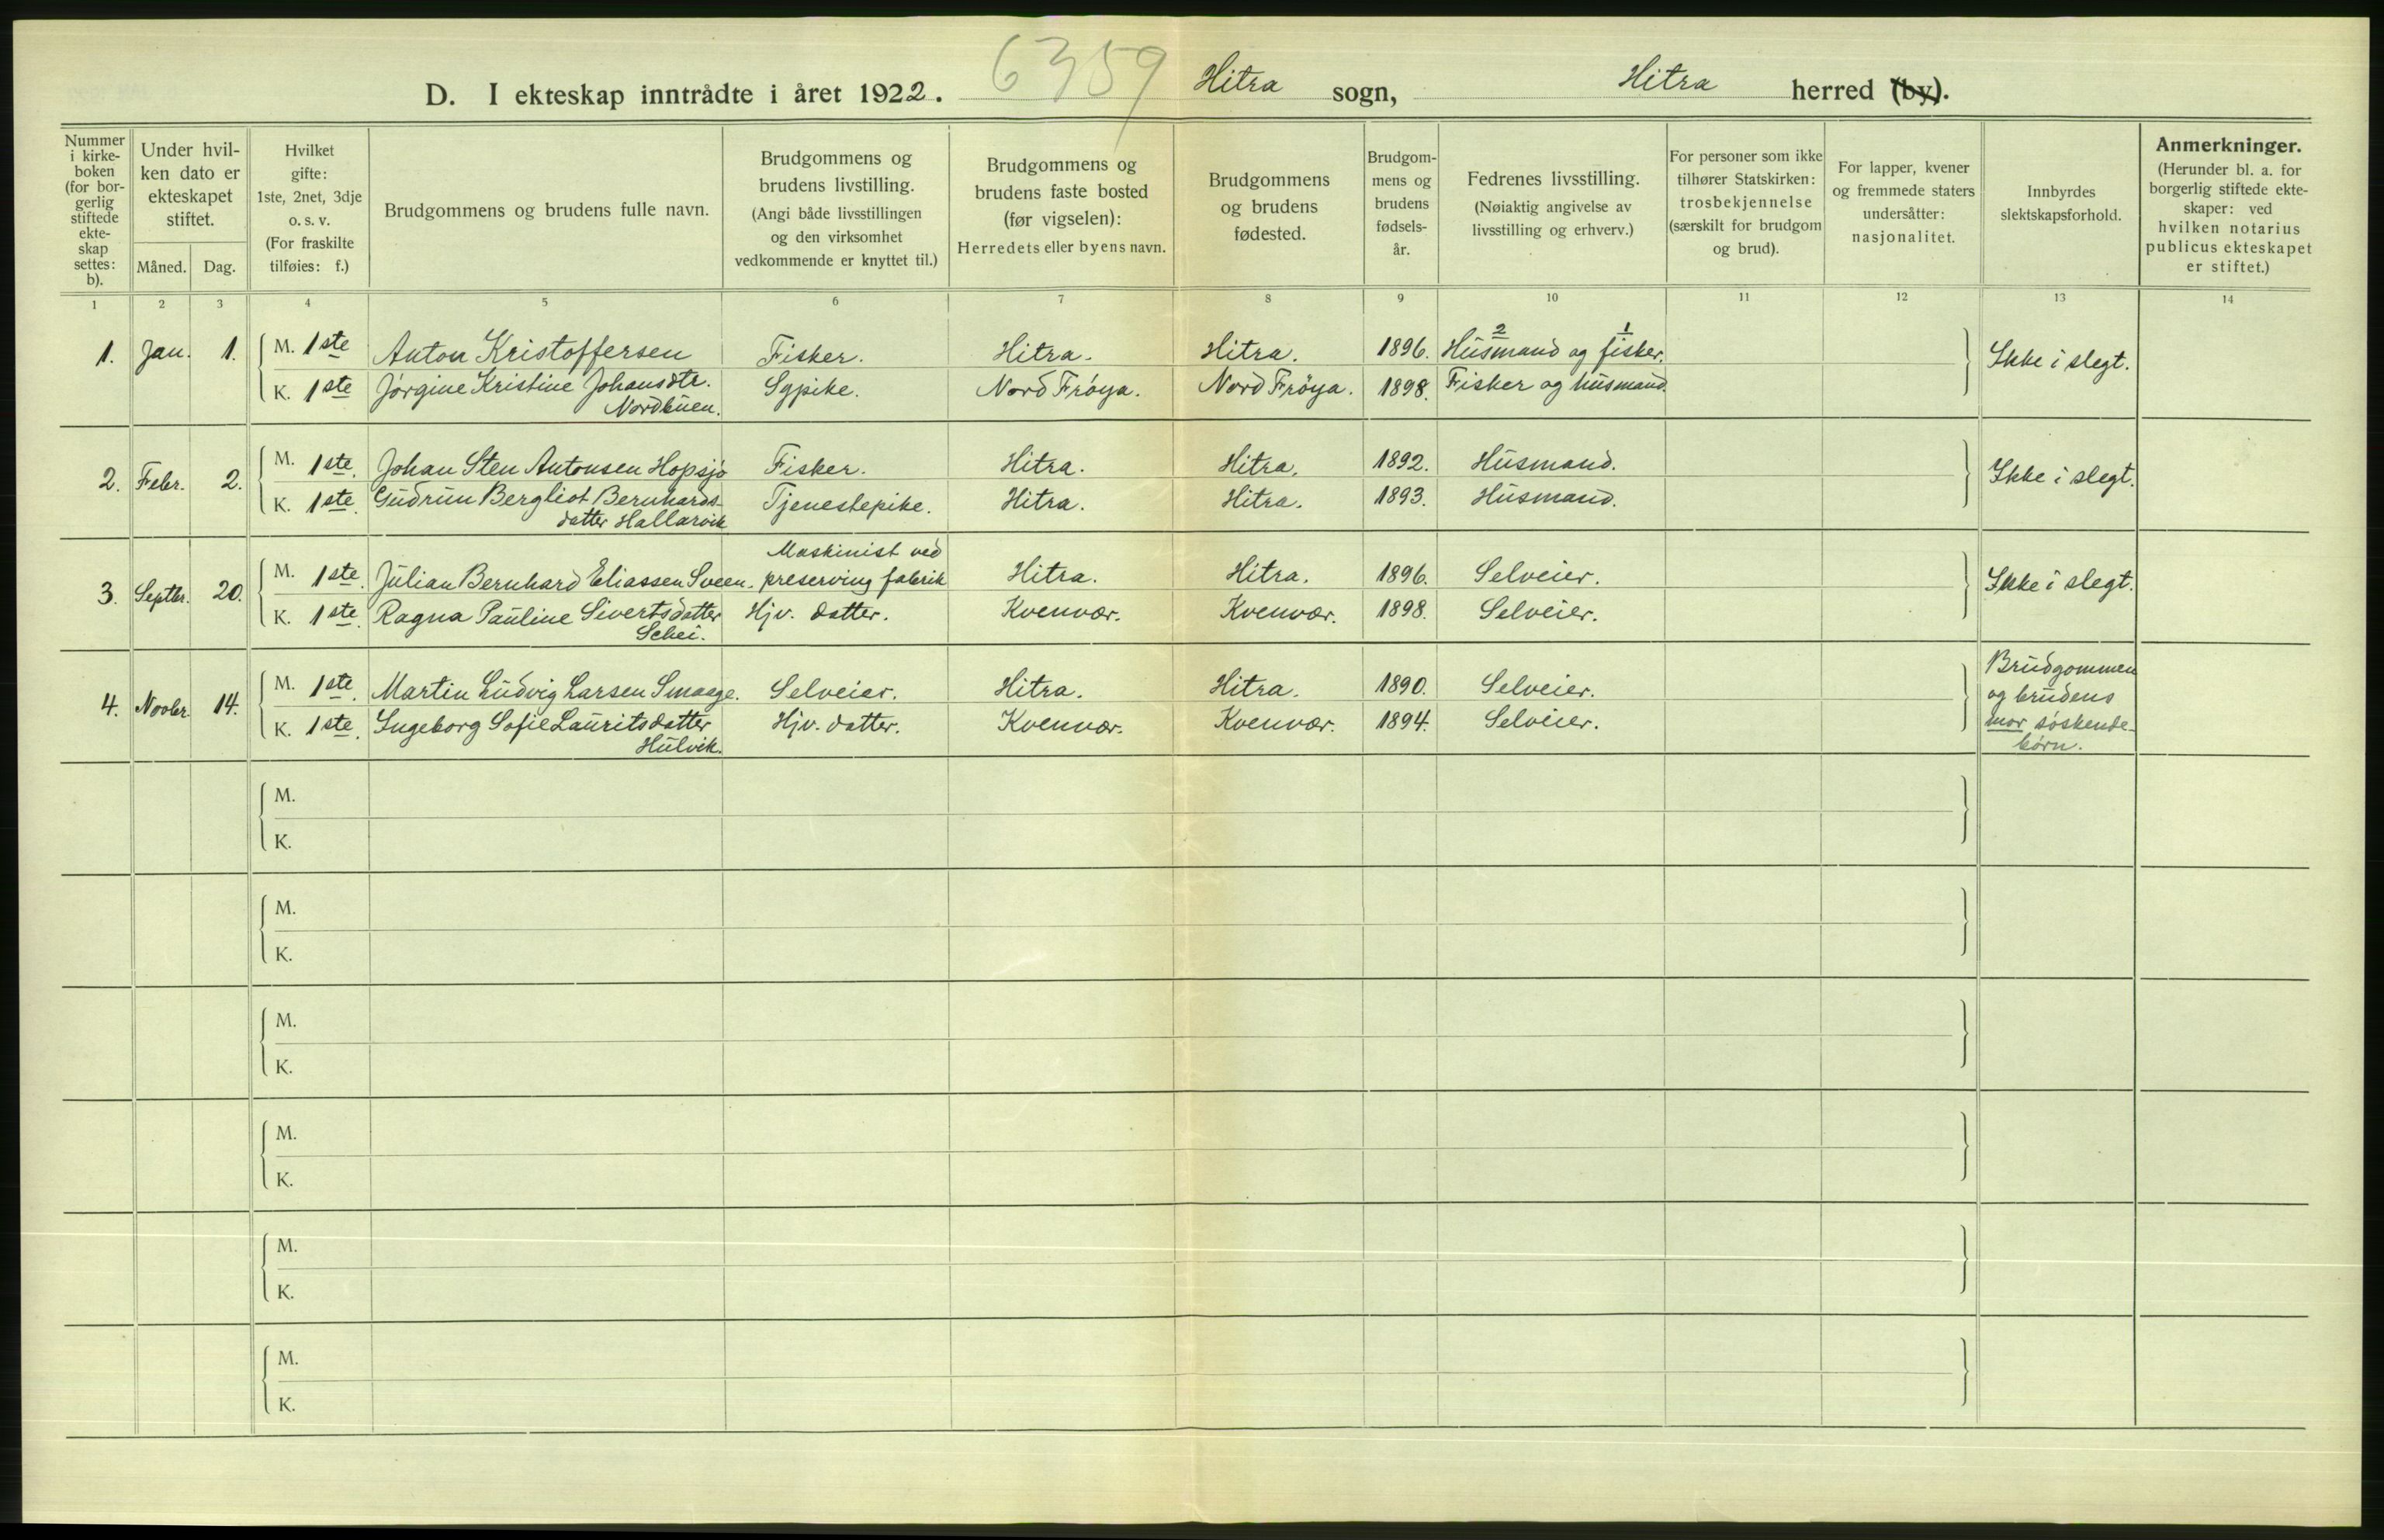 6359
D. I ekteskap inntrådte i året 1922. Hitra sogn, Hitra herred (by).
Nummer i kirke-boken (for bor-gerlig stiftede ekte-skap settes: b).
Under hvil-ken dato er ekteskapet stiftet.
Måned. Dag.
Hvilket gifte: 1ste, 2net, 3dje o. s. v. (For fraskilte tilføies: f.)
Brudgommens og brudens fulle navn.
Brudgommens og brudens livstilling. (Angi både livsstillingen og den virksomhet vedkommende er knyttet til.)
Brudgommens og brudens faste bosted (før vigselen): Herredets eller byens navn.
Brudgommens og brudens fødested.
Brudgom-mens og brudens fødsels-år.
Fedrenes livsstilling. (Nøiaktig angivelse av livsstilling og erhverv.)
For personer som ikke tilhører Statskirken: trosbekjennelse (særskilt for brudgom og brud).
For lapper, kvener og fremmede staters undersåtter: nasjonalitet.
Innbyrdes slektskapsforhold.
Anmerkninger. (Herunder bl. a. for borgerlig stiftede ekte-skaper: ved hvilken notarius publicus ekteskapet er stiftet.)
1 2 3 4 5 6 7 8 9 10 11 12 13 14
2 1
1. Jan. 1. M. 1ste Anton Kristoffersen Fisker. Hitra. Hitra. 1896. Husmand og fisker. Ikke i slegt.
K. 1ste Jórgine Kristine Johansdtr. Sypike. Nord Fróya. Nord Fröya. 1898. Fisker og husmand.
Nordbuen.
2. Febr. 2. M. 1ste. Johan Sten Antonsen Hopsjo Fisker. Hitra. Hitra. 1892. Husmand. Ikke i slegt.
K. 1ste. Gudrun Bergliot Bernhards- Tjenestepike. Hitra. Hitra. 1893. Husmand.
datter Hallarvik
Maskinist ved
3. Septbr. 20. M. 1ste. Julian Bernhard Eliassen Sveen. preserving fabrik Hitra. Hitra. 1896. Selveier. Ikke i slegt.
K. 1ste. Ragna Pauline Sivertsdatter Hjv. datter. Kvenvær. Kvenvær. 1898. Selveier.
Schei.
Brudgommen
4. Novbr. 14. M. 1ste. Martin Ludvig Larsen Smaage. Selveier. Hitra. Hitra. 1890. Selveier. og brudens
K. 1ste. Ingeborg Sofie Lauritsdatter Hjv. datter. Kvenvær. Kvenvær. 1894. Selveier. mor sóskende-
Hulvik. börn.
M.
K.
M.
K.
M.
K.
M.
K.
M.
K.
M.
K.